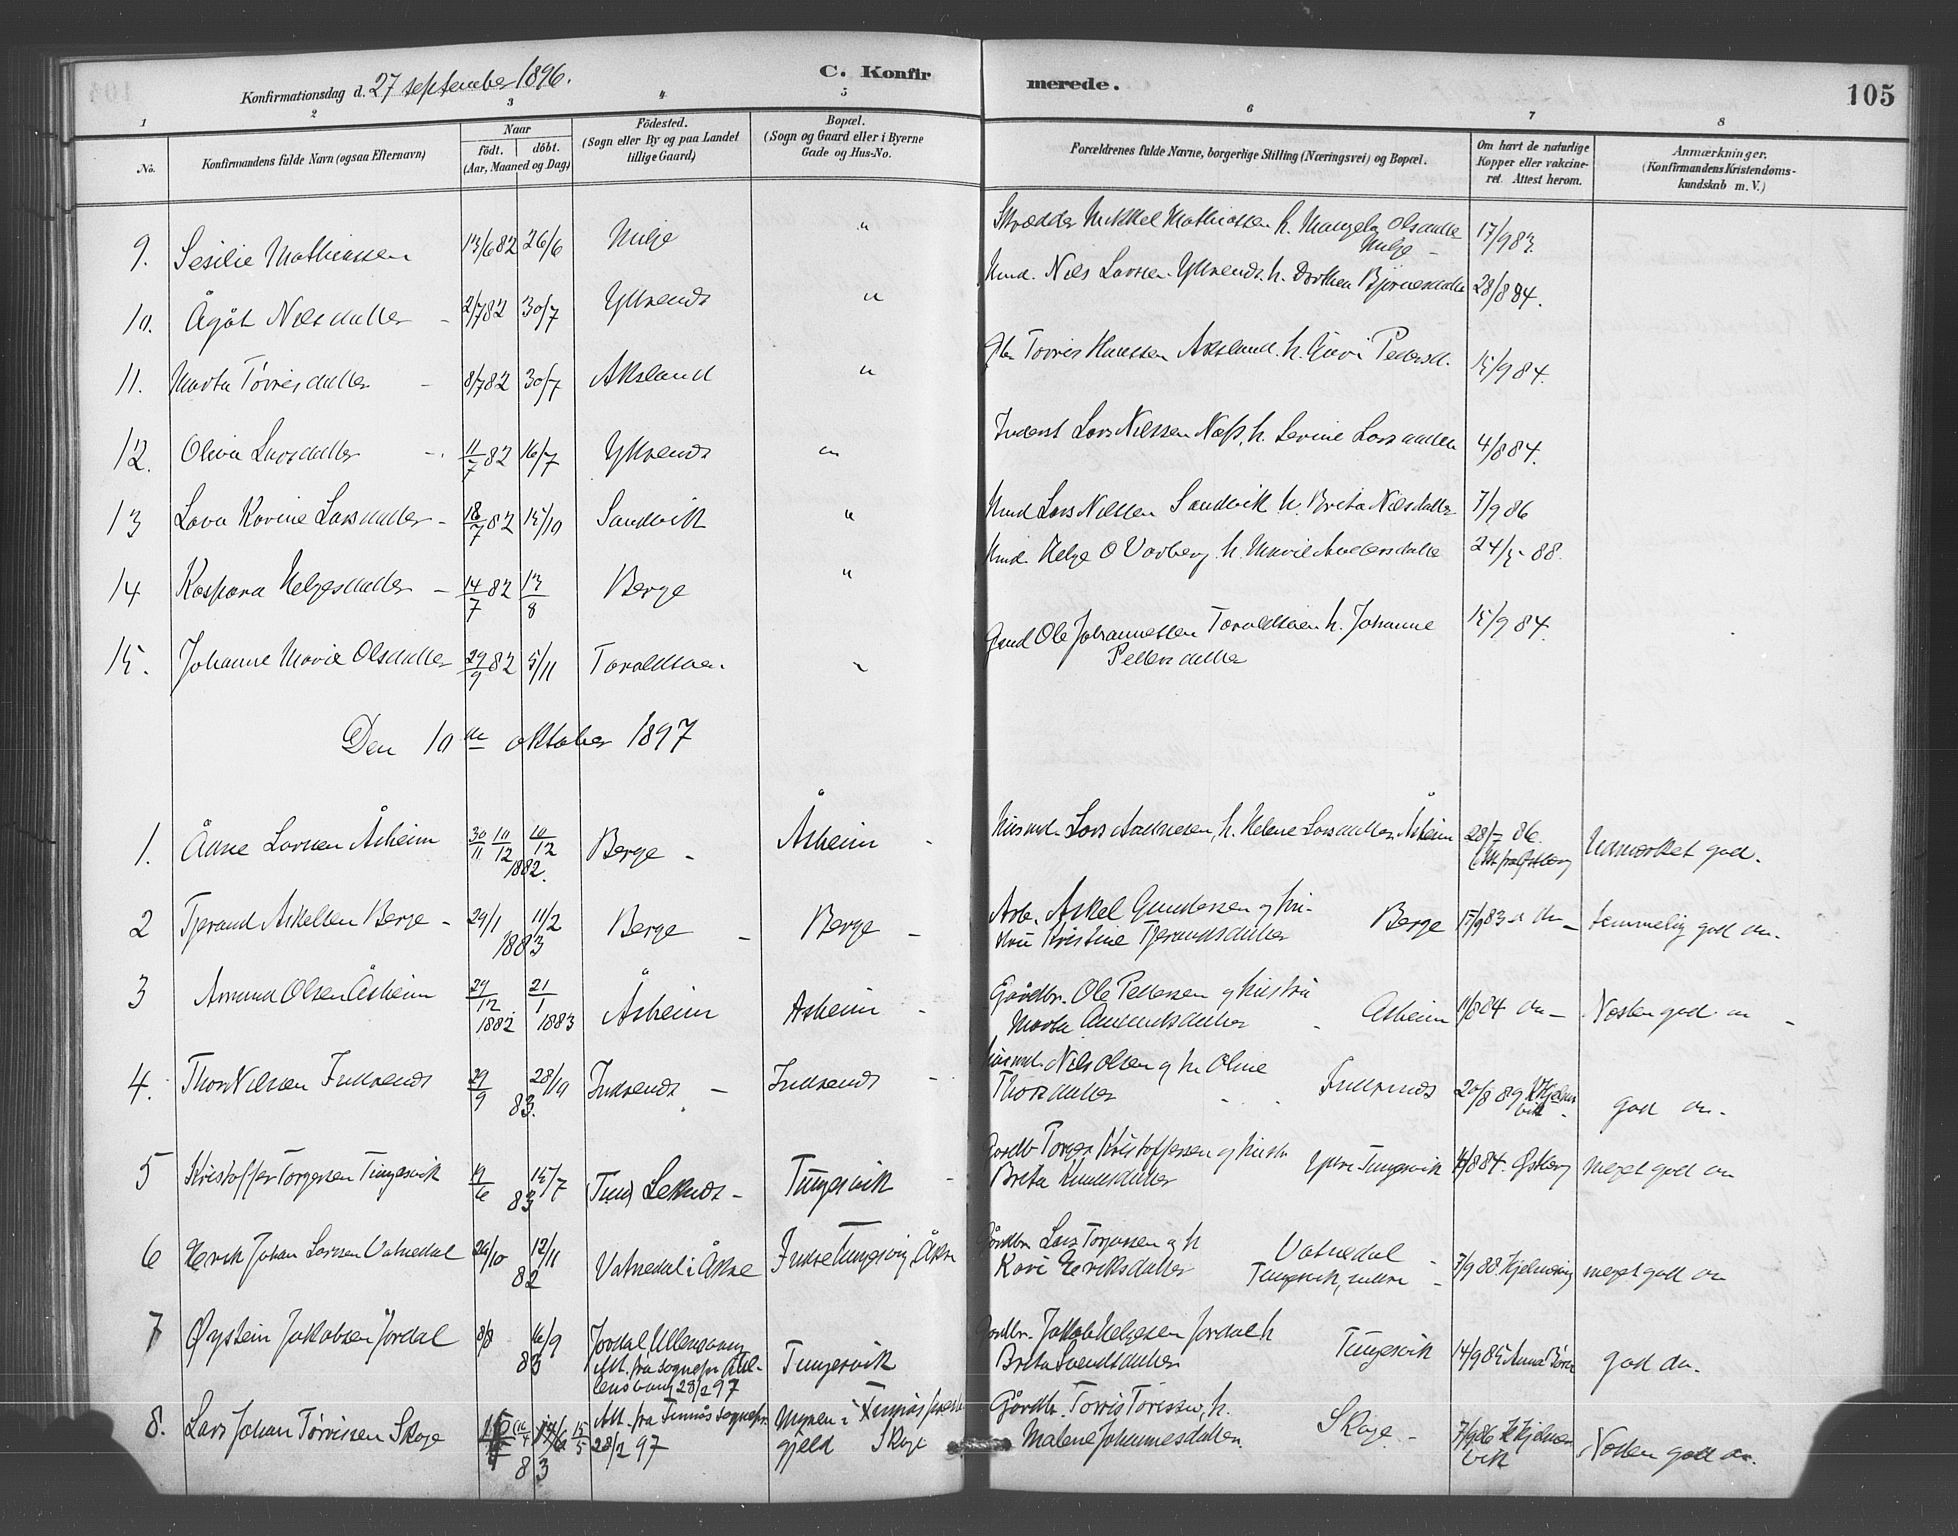 Konfirmationsdag d. 27 september 1896.
C. Konfirmerede.
105
1 2 3 4 5 6 7 8
No.
Konfirmandens fulde Navn (ogsaa Efternavn)
Naar
födt. döbt.
(Aar, Maaned og Dag)
Födested.
(Sogn eller By og paa Landet
tillige Gaard)
Bopæl.
(Sogn og Gaard eller i Byerne
Gade og Hus-No.
Forældrenes fulde Navne, borgerlige Stilling (Næringsvei) og Bopæl.
Om havt de naturlige
Kopper eller vakcine-
ret. Attest herom.
Anmærkninger.
(Konfirmandens Kristendoms-
kundskab m. V.)
9. Sesilie Mathiassen 13/6 82 26/6 Milje " Skrædder Mikkel Mathiassen h. Olsdatter 17/9 83.
Milje -
10. Ågåt Nilsdatter - 2/7 82 30/7 " Nils Larsen h. Dorthea Bjørnesdatter 28/8 84.
11. Marta Tørresdatter - 8/7 82 30/7 Aksland " Tørres Hanssen Aksland. h. Guri Pedersd. 15/9 84.
12. Oliva Larsdatter 11/7 82 16/7 " Inderst Lars Nilssen Næss, h. Serine Larsdatter 4/8 84.
13 Lava Karine Larsdatter - 18/7 82 15/10 Sandvik " Lars Nilssen Sandvik h. Brita Nilsdatter 7/9 86
14 Kaspara Helgesdatter - 14/7 82 13/8 Berge " Helge O Varberg h. Marie Andersdatter 24/5 - 88.
15. Johanne Marie Olsdatter 29/9 82 5/11 " Ole Johannessen h. Johanne 15/9 84.
Pedersdatter
Den 10de oktober 1897
1.Ånne Larsen Åsheim 30/11 10/12 10/12 1882. Berge - Åsheim - Husmd. Lars h. Helene Larsdatter. Åsheim 28/ 86. Udmærket god.
2 Tjerand Askelsen Berge - 29/1 11/2 1883 Berge - Berge - Arb. Askel Gundersen og hu-
stru Kristine Tjerandsdatter Berge 15/9 83 temmelig god do.
3 Amund Olsen Åsheim 29/12 1882 21/1 1883 Åsheim Åsheim - Gårdbr. Ole Pedersen og hustru
Marta Amundsdatter Åsheim 11/8 84 do - Næsten god do -
4. Thor Nilsen Indrends 29/9 28/10 83. Indrends - Indrends - Husmd. Nils Olsen og h. Oline
Thorsdatter Indrends 20/8 89 god do.
5 Kristoffer Torgersen Tungesvik 11/6 15/7 83 Leknes - Tungesvik - Gårdbr Torger Kristoffersen og hustru
Brita Knudsdatter Ytre Tungesvik 84. Østberg meget god do
6 Henrik Johan Larssen Vatnedal 26/10 12/11 82 Vatnedal i Åkre Indre Tungesvig, Åkre Gårdbr. Lars Torjussen og h
Kari Eriksdatter Vatnedal -
Tungesvik, indre - 7/9 88. Hjelmevig meget god do
7 Øystein Jakobsen Jordal 8/8 16/9 83 Jordal Ullensvang
Att. fra sognepr. Ul-
lensvang 28/2 97 Tungesvik Gårdbr. Jakob Helgesen Jordal h
Brita Svendsdatter Tungesvik 14/9 85 god do.
8. Lars Johan Tørrissen Skage 15/5 83 Att. fra Finnås sognepr.
28/2 97 i Finnås præste
gjeld Skage Gårdbr. Tørris Tørissen, h.
Malene Johannesdatter. Skage. - 7/9 86 Næsten god do.